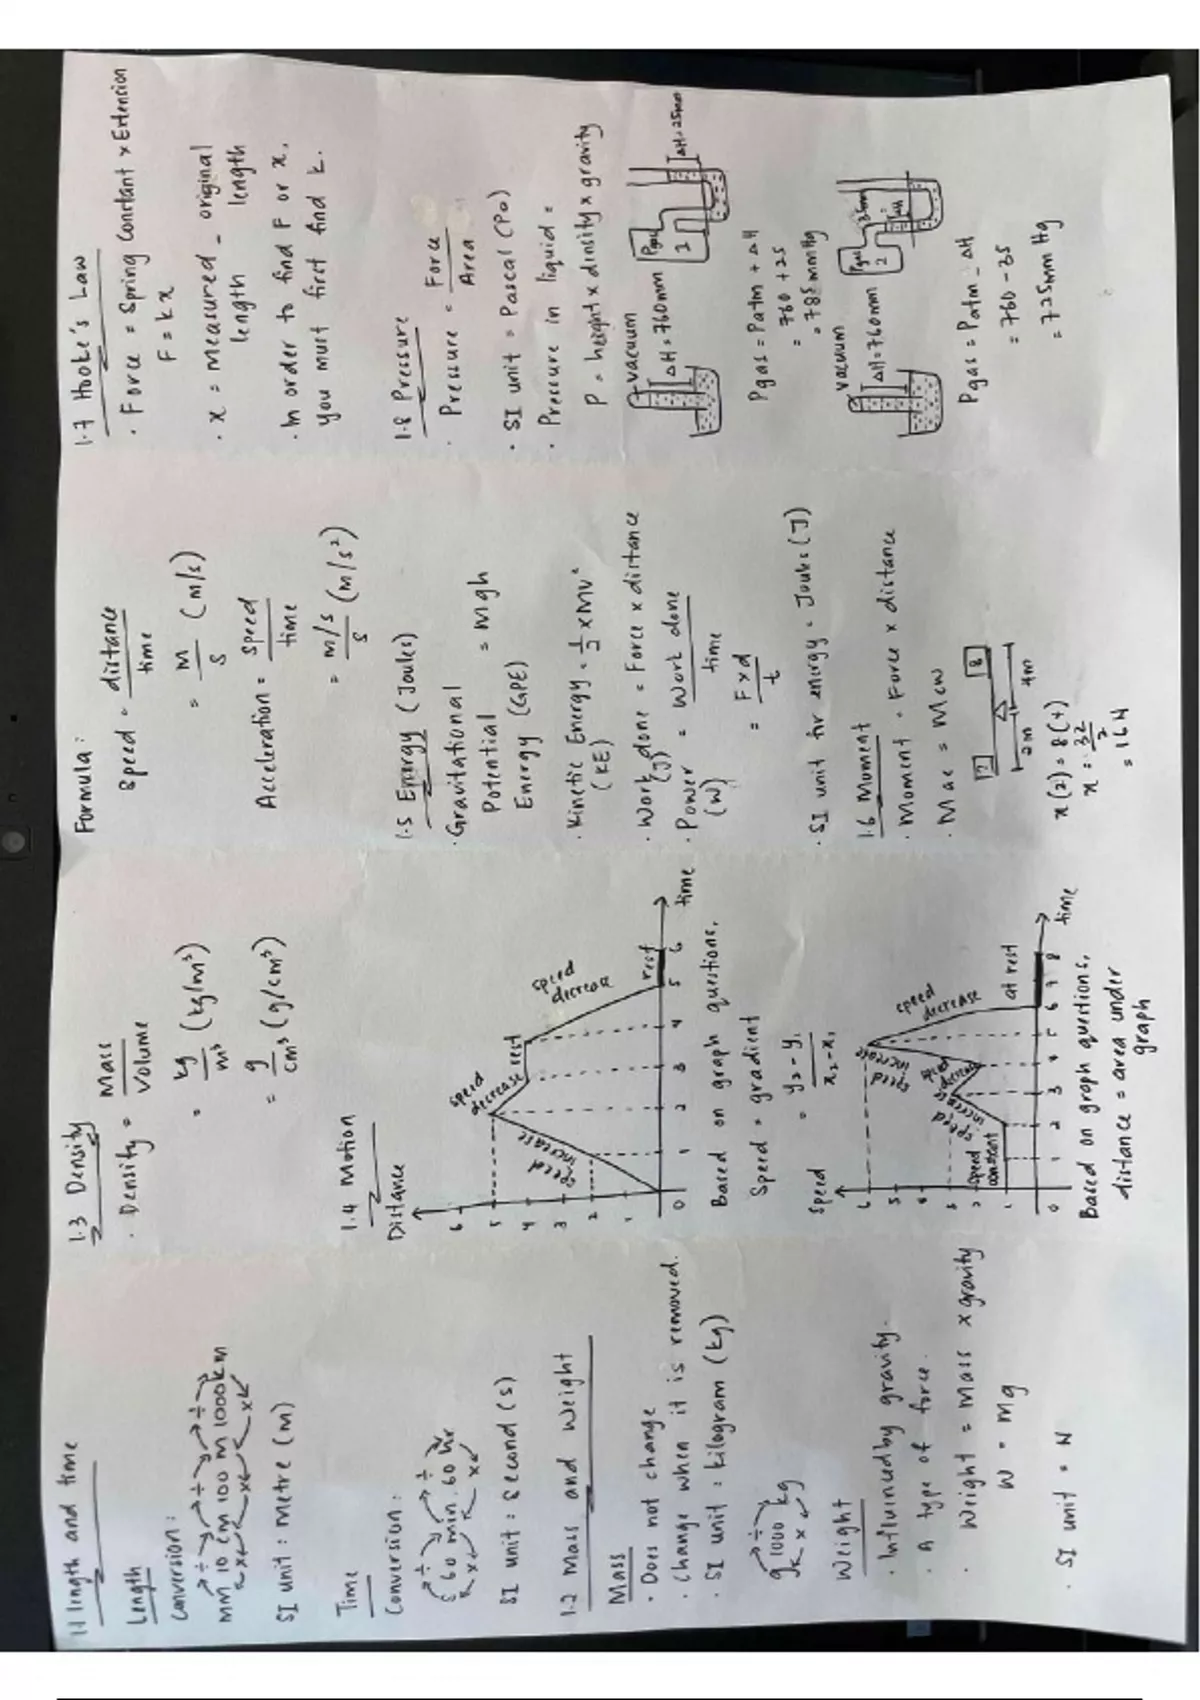 1.1 length and time
Length
Conversion:
÷ ÷ ÷
MM 10 cm 100 m 1000 km
x x x
SI unit : Metre (m)
Time
Conversion :
÷ ÷
s 60 min 60 hr
x x
SI unit : second (s)
1.2 Mass and Weight
Mass
· Does not change
· Change when it is removed.
· SI unit : kilogram (kg)
÷
g 1000 kg
x
Weight
· Influinced by gravity.
· A type of force.
· Weight = Mass x gravity
W = mg
· SI unit = N
1.3 Density
· Density = Mass
Volume
= kg (kg/m³)
m³
= g (g/cm³)
cm³
1.4 Motion
Distance
6
5
4
3
2
1
speed increase
speed decrease
rest
speed decrease
rest
0 1 2 3 4 5 6
time
Based on graph questions,
Speed = gradient
= y₂ - y₁
x₂ - x₁
Speed
6
5
4
3
2
1
speed constant
speed increase
speed decrease
speed increase
speed decrease
at rest
0 1 2 3 4 5 6 7 8
time
Based on graph questions,
distance = area under
graph
Formula :
Speed = distance
time
= M (m/s)
s
Acceleration = speed
time
= m/s (m/s²)
s
1.5 Energy (Joules)
· Gravitational
Potential = mgh
Energy (GPE)
· Kinetic Energy = 1/2 x mv²
(KE)
· Work done = Force x distance
(J)
· Power = Work done
(W) time
= F x d
t
· SI unit for energy = Joules (J)
1.6 Moment
· Moment = Force x distance
· Mac = Mcw
? 8
2m 4m
x(2) = 8(4)
x = 32
2
= 16N
1.7 Hooke's Law
· Force = Spring Constant x Extension
F = kx
· x = measured - original
length length
· In order to find F or x,
you must first find k.
1.8 Pressure
· Pressure = Force
Area
· SI unit = Pascal (Pa)
· Pressure in liquid =
P = height x density x gravity
vacuum
ΔH=760mm
Pgas
?
ΔH=25mm
Pgas = Patm + ΔH
= 760 + 25
= 785 mmHg
vacuum
ΔH=760mm
Pgas
?
35mm
ΔH
Pgas = Patm - ΔH
= 760 - 35
= 725mm Hg